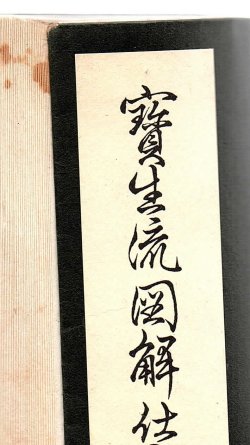 寶生流図解仕